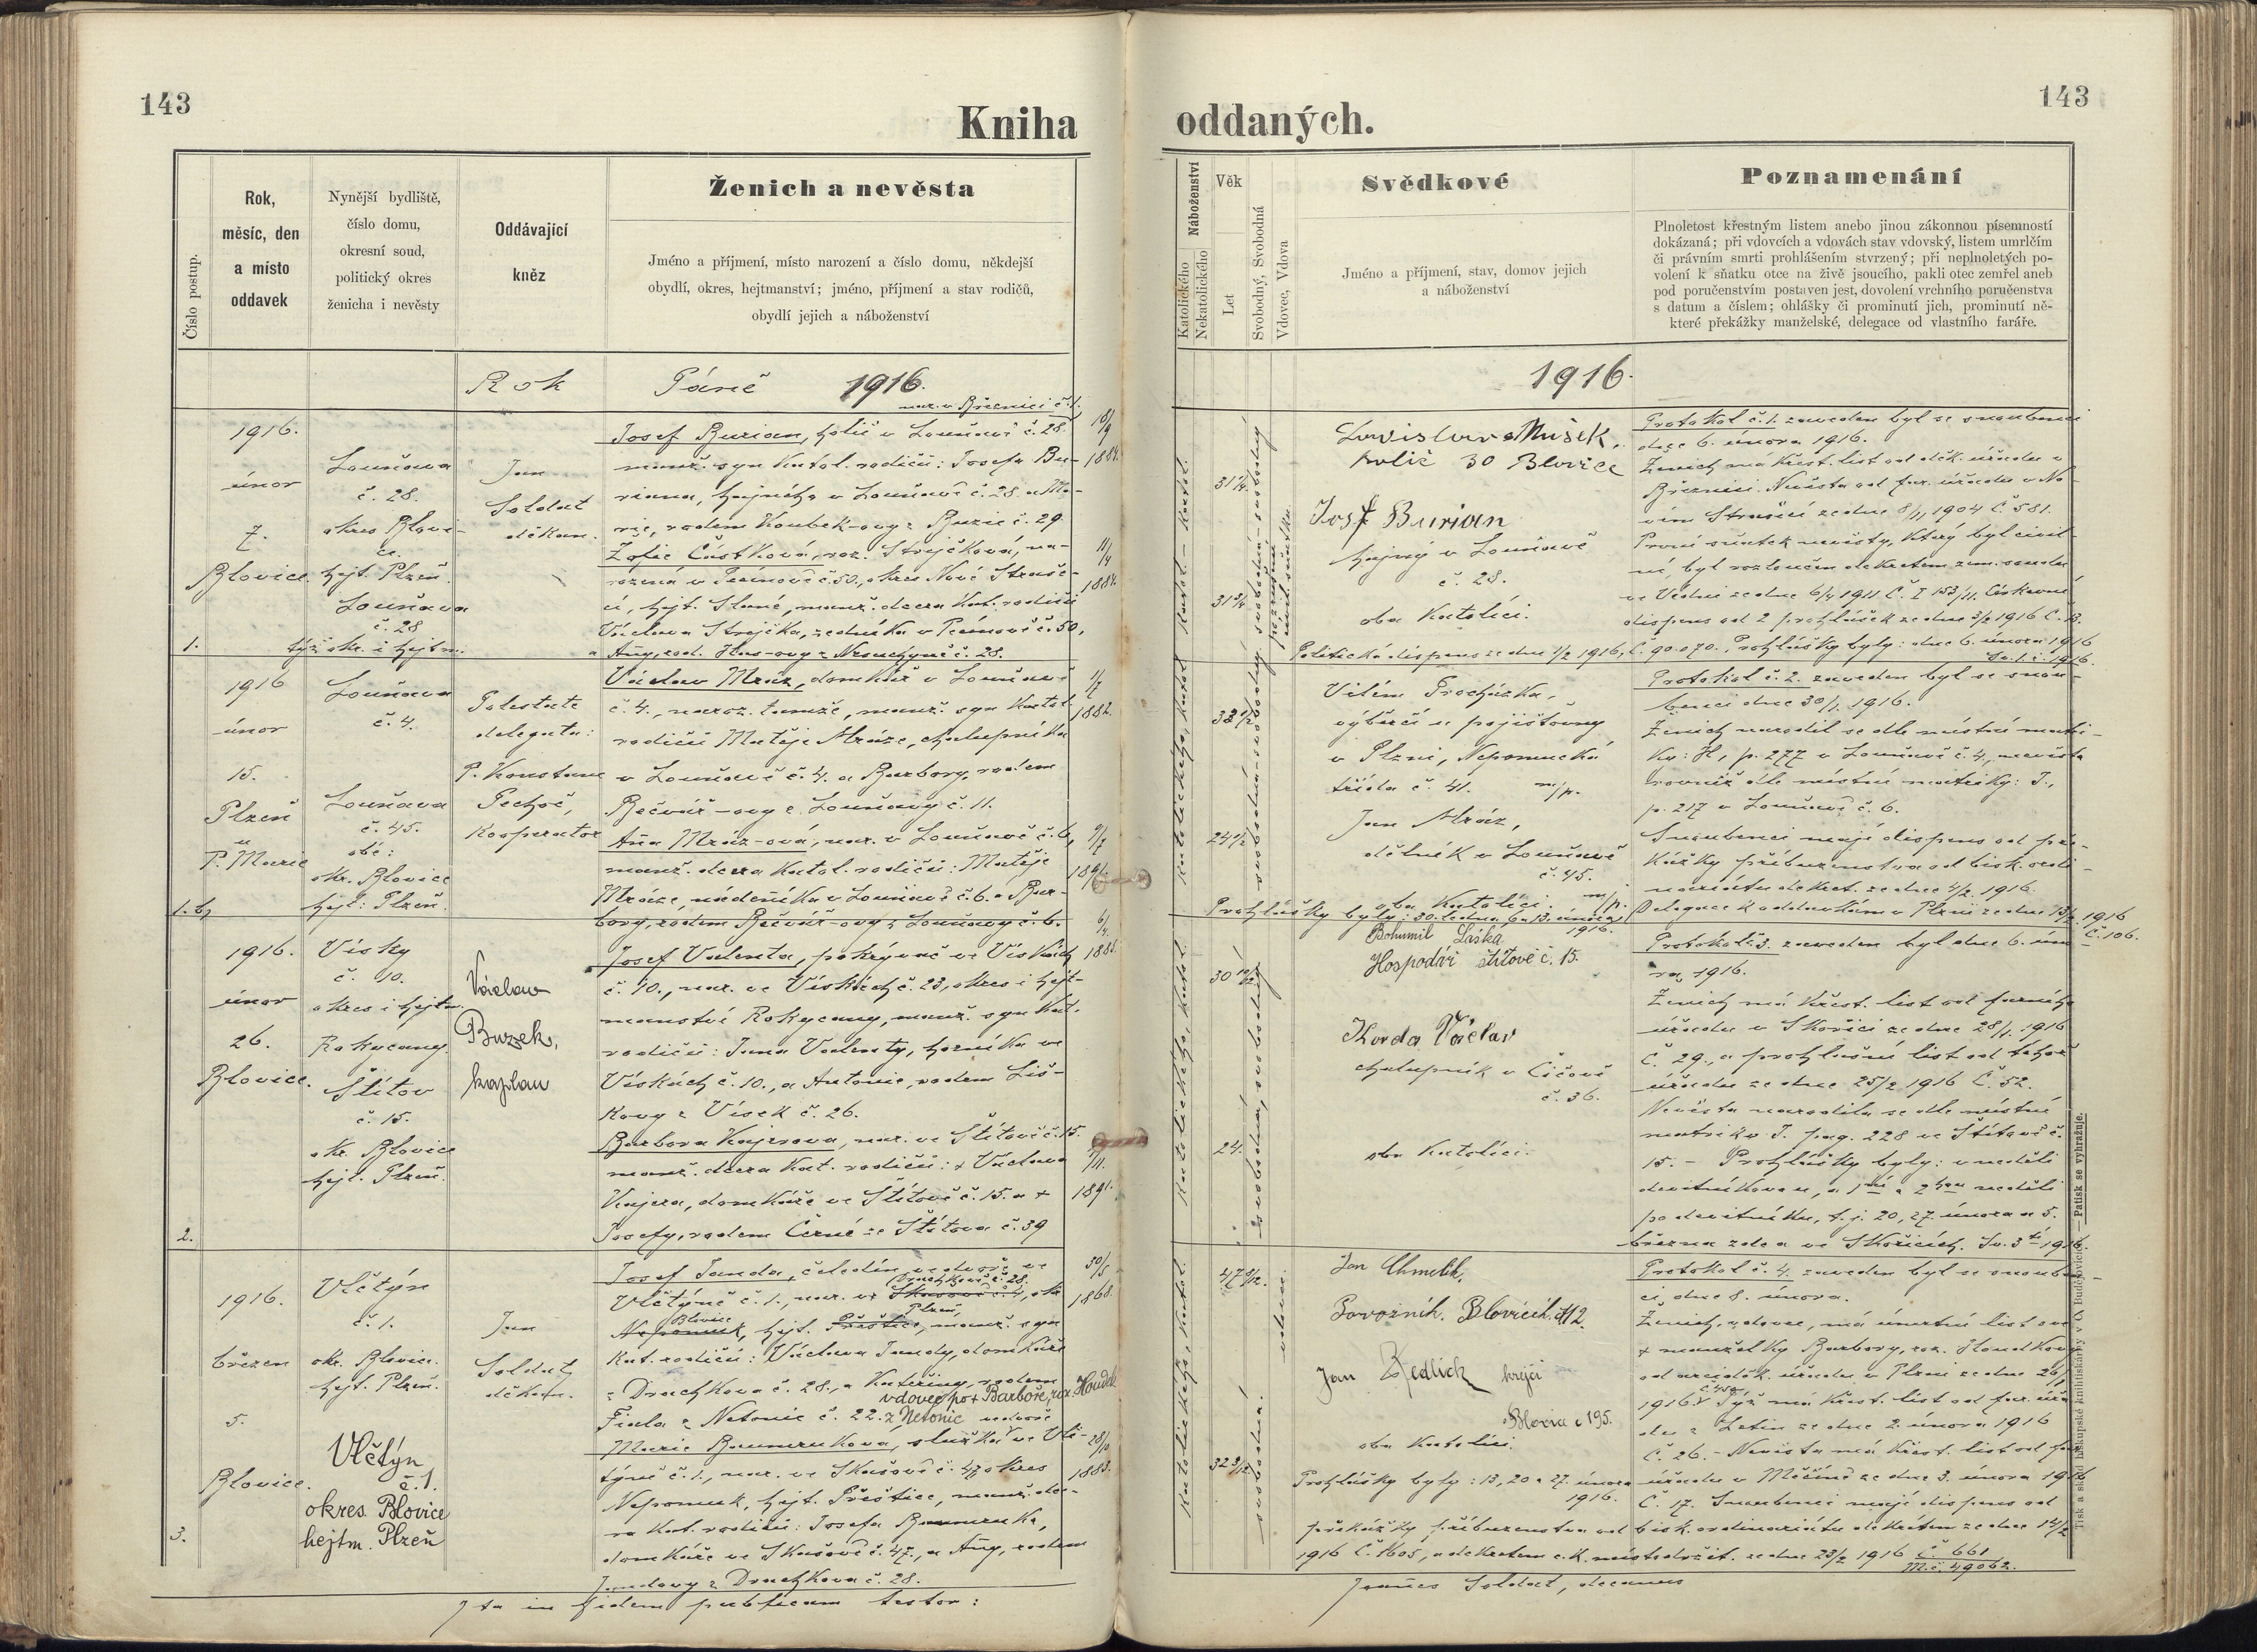 143
Kniha
Číslo postup.
Rok,
měsíc, den
a místo
oddavek
Nynější bydliště,
číslo domu,
okresní soud,
politický okres
ženicha i nevěsty
Oddávající
kněz
Ženich a nevěsta
Jméno a příjmení, místo narození a číslo domu, někdejší
obydlí, okres, hejtmanství; jméno, příjmení a stav rodičů,
obydlí jejich a náboženství
Rok Páně 1916.
1916.
únor
7.
Blovice.
1.
Louňava
č. 28.
okres Blovi-
ce.
hejt. Plzeň.
Louňava
č. 28
týž okr. i hejtm.
Jan
Soldat
děkan.
nar. v Březnici č. 1.
Josef Burian, holič v Louňavě č. 28
manž. syn katol. rodičů: Josefa Bu-
riana, hajného v Louňavě č. 28. a Ma-
rie, rodem Koubek-ovy z Buzic č. 29
Žofie Částková, roz. Strejčková, na-
rozená v Pecínově č. 50, okres Nové Straše-
cí, hejt. Slané, manž. dcera kat. rodičů
Václava Strejčka, zedníka v Pecínově č. 50,
a Anny, rod. Hus-ovy z Nesuchyně č. 28.
18/9
1884.
11/4
1884.
1916
únor
15.
Plzeň
u
P. Marie
Louňava
č. 4.
Louňava
č. 45.
obé:
okr. Blovice
hejt: Plzeň.
Potestate
delegata:
P. Konstant
Pechoč,
kooperator
Václav Mráz, domkář v Louňavě
č. 4., naroz. tamže, manž. syn katol.
rodičů Matěje Mráze, chalupníka
v Louňavě č. 4. a Barbory, rodem
Bečvář-ovy z Louňavy č. 11.
Anna Mráz-ová, nar. v Louňavě č. 6,
manž. dcera katol. rodičů: Matěje
Mráze, nádeníka v Louňavě č. 6. a Bar-
bory, rodem Bečvář-ovy z Louňavy č. 6.
1/7
1882.
9/7
1891.
1916.
únor
26.
Blovice.
2.
Vísky
č. 10.
okres i hejtm.
Rokycany.
Štítov
č. 15.
okr. Blovice
hejt. Plzeň.
Václav
Buzek,
kaplan
Josef Valenta, pokrývač ve Vískách
č. 10., nar. ve Vískách č. 23, okres i hejt-
manství Rokycany, manž. syn kat.
rodičů: Jana Valenty, horníka ve
Vískách č. 10., a Antonie, rodem Liš-
kovy z Vísek č. 26.
Barbora Kajerova, nar. ve Štítově č. 15.
manž. dcera kat. rodičů: + Václava
Kajera, domkáře ve Štítově č. 15. a +
Josefy, rodem Černé ze Štítova č. 39
6/4.
1891.
1916.
březen
5.
Blovice.
3.
Vlčtýn
č. 1.
okr. Blovice.
hejt. Plzeň.
Vlčtýn
č. 1.
okres Blovice
hejtm. Plzeň
Jan
Soldat,
děkan.
Josef Janda, čeledín ve dvoře ve
Drachkově č. 28.
Vlčtýně č. 1., nar. ve Skašově č. 4, okr.
Blovice Plzeň
Nepomuk, hejt. Přeštice, manž. syn
kat. rodičů: Václava Jandy, domkáře
z Drachkova č. 28., a Kateřiny, rodem
vdovec po + Barboře, roz. Houdek
Fiala z Netonic č. 22. z Netonic
Marie Baumrukova, služka ve Vlč-
týně č. 1., nar. ve Skašově č. 47, okres
Nepomuk, hejt. Přeštice, manž. dce-
ra kat. rodičů: Josefa Baumruka,
domkáře ve Skašově č. 47., a Anny, rodem
Jandovy z Drachkova č. 28.
30/5
1868.
28/10
1883.
Ita in fidem publicam testor:
143
oddaných.
Náboženství
Katolického
Nekatolického
Věk
Let
Svobodný, Svobodná
Vdovec, Vdova
Svědkové
Jméno a příjmení, stav, domov jejich
a náboženství
Poznamenání
Plnoletost křestným listem anebo jinou zákonnou písemností
dokázaná; při vdovcích a vdovách stav vdovský, listem umrlčím
či právním smrti prohlášením stvrzený; při neplnoletých po-
volení k sňatku otce na živě jsoucího, pakli otec zemřel aneb
pod poručenstvím postaven jest, dovolení vrchního poručenstva
s datum a číslem; ohlášky či prominutí jich, prominutí ně-
které překážky manželské, delegace od vlastního faráře.
1916.
Ladislav Mušek,
holič 30 Blovice
Josef Burian
hajný v Louňavě
č. 28.
oba katolíci.
Protokol č. 1. zaveden byl se snoubenci
dne 6. února 1916.
Ženich má křest. list od děk. úřadu v
Březnici. Nevěsta od far. úřadu v No-
vém Strašecí ze dne 8/11 1904 č. 581.
První sňatek nevěsty, který byl civil-
ní, byl rozloučen dekretem zem. soudu
ve Vídni ze dne 6/4 1911 č. I 153/11. Církevní
dispens od 2 prohlášek ze dne 3/2 1916 č. 13.
Politická dispens ze dne 7/2 1916, č. 90.070. Prohlášky byly: dne 6. února 1916
Vilém Procházka,
výběrčí u pojišťovny
v Plzni, Nepomucká
třída č. 41. m/p.
Jan Mráz,
dělník v Louňavě
č. 45.
oba katolíci. m/p.
Prohlášky byly: 30. ledna, 6 a 13. února
1916.
Protokol č. 2. zaveden byl se snou-
benci dne 30/1. 1916.
Ženich narodil se dle místní matri-
ky: H, p. 277 v Louňavě č. 4., nevěsta
rovněž dle místní matriky: I.,
p. 217 v Louňavě č. 6.
Snoubenci mají dispens od pře-
kážky příbuzenstva od bisk. ordi-
nariátu dekret. ze dne 4/2. 1916.
Delegace k oddavkám v Plzni ze dne 13/2 1916
č. 106.
Bohumil Liška
Hospodář Štítově č. 15.
Korda Václav
chalupník v Čičově
č. 36.
oba katolíci.
Protokol č. 3. zaveden byl dne 6. úno-
ra 1916.
Ženich má křest. list od farního
úřadu v Skořici ze dne 28/1. 1916
č. 29., a prohlašní list od téhož
úřadu ze dne 25/2 1916 č. 52.
Nevěsta narodila se dle místní
matriky I. pag. 228 ve Štítově č.
15. – Prohlášky byly: v neděli
devítníkovou, a 1ní a 2hou neděli
po devítníku, t. j. 20, 27. února a 5.
března zde a ve Skořicích.
Jan Chmelík,
Povozník. Blovicích.
Jan Redlich krejčí
Blovice č 195.
oba katolíci.
Prohlášky byly: 13, 20 a 27. února
1916.
Protokol č. 4. zaveden byl se snouben-
ci dne 8. února.
Ženich, vdovec, má úmrtní list své
+ manželky Barbory, roz. Houdkovy
od arciděk. úřadu v Plzni ze dne 26/1
1916. Týž má křest. list od far. úřa-
du z Letin ze dne 2. února 1916
č. 26. – Nevěsta má křest. list od far.
úřadu v Měčíně ze dne 3. února 1916
č. 17. Snoubenci mají dispens od
překážky příbuzenstva od bisk. ordinariátu dekretem ze dne 14/2
1916 č. 1605, a dekretem c. k. místodržit. ze dne 23/2 1916 č. 661
M. č. 49062.
Joannes Soldat, decanus
Tisk a sklad biskupské knihtiskárny v Č. Budějovicích. — Patisk se vyhražuje.